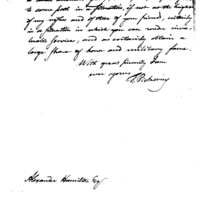 to some post in a situation, if not at the height
of my wishes and of those of your friends, certainly
in a situation in which you can render inva-
luable service, and as certainly obtain a
large share of honor and military fame.
With great sincerity I am
ever yours
T. Pickering
Alexander Hamilton Esq